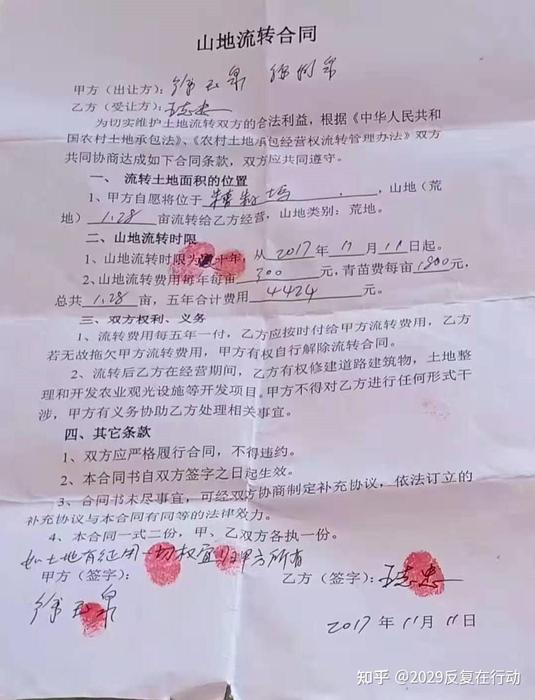 山地流转合同
甲方（出让方）：徐玉泉
乙方（受让方）：王志忠
为切实维护土地流转双方的合法利益，根据《中华人民共和
国农村土地承包法》、《农村土地承包经营权流转管理办法》双方
共同协商达成如下合同条款，双方应共同遵守。
一、流转土地面积的位置
1、甲方自愿将位于，山地（荒
地）1.28亩流转给乙方经营，山地类别：荒地。
二、山地流转时限
1、山地流转时限为十年，从2017年11月11日起。
2、山地流转费用每年每亩300元，青苗费每亩1800元，
总共1.28亩，五年合计费用4424元。
三、双方权利、义务
1、流转费用每五年一付，乙方应按时付给甲方流转费用，乙方
若无故拖欠甲方流转费用，甲方有权自行解除流转合同。
2、流转后乙方在经营期间，乙方有权修建道路建筑物，土地整
理和开发农业观光设施等开发项目。甲方不得对乙方进行任何形式干
涉，甲方有义务协助乙方处理相关事宜。
四、其它条款
1、双方应严格履行合同，不得违约。
2、本合同书自双方签字之日起生效。
3、合同书未尽事宜，可经双方协商制定补充协议，依法订立的
补充协议与本合同有同等的法律效力。
4、本合同一式二份，甲、乙双方各执一份。
如土地有征用一切权宜归甲方所有
甲方（签字）：
乙方（签字）：王志忠
徐玉泉
2017年11月11日
知乎 @2029反复在行动